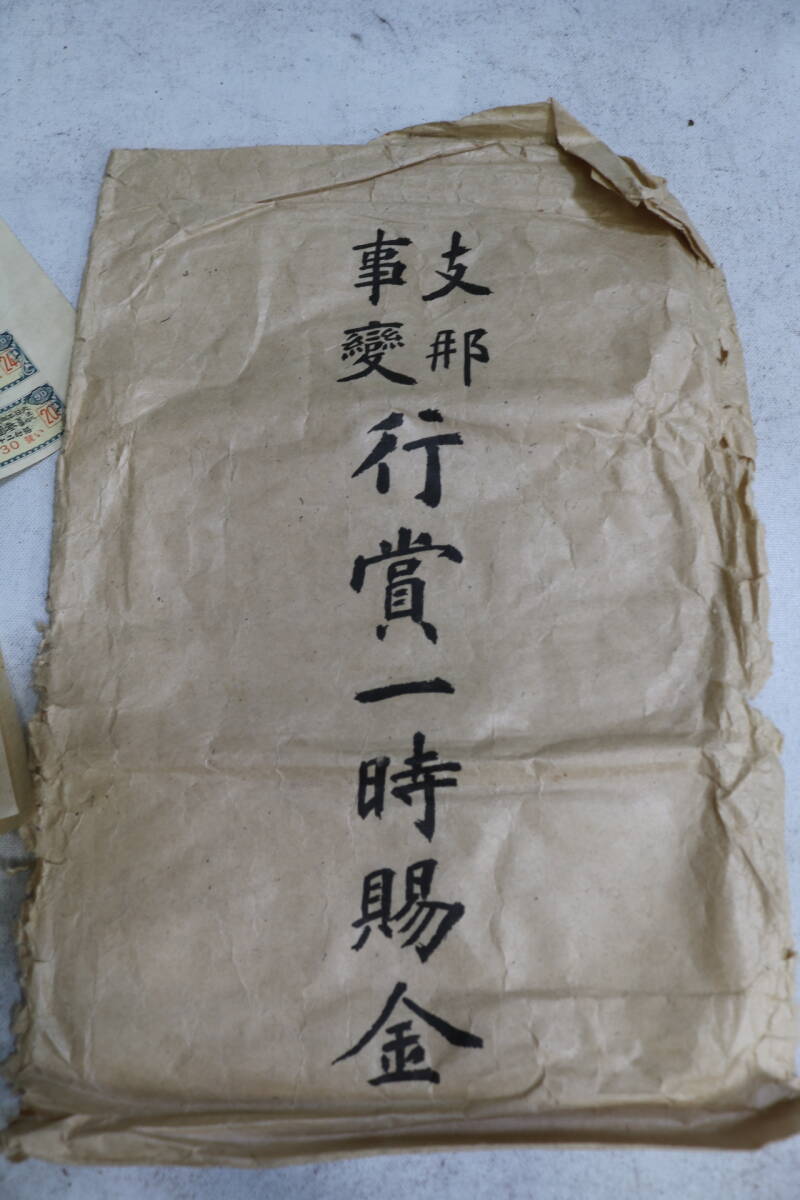 支那
事變
行賞一時賜金
24
20
30